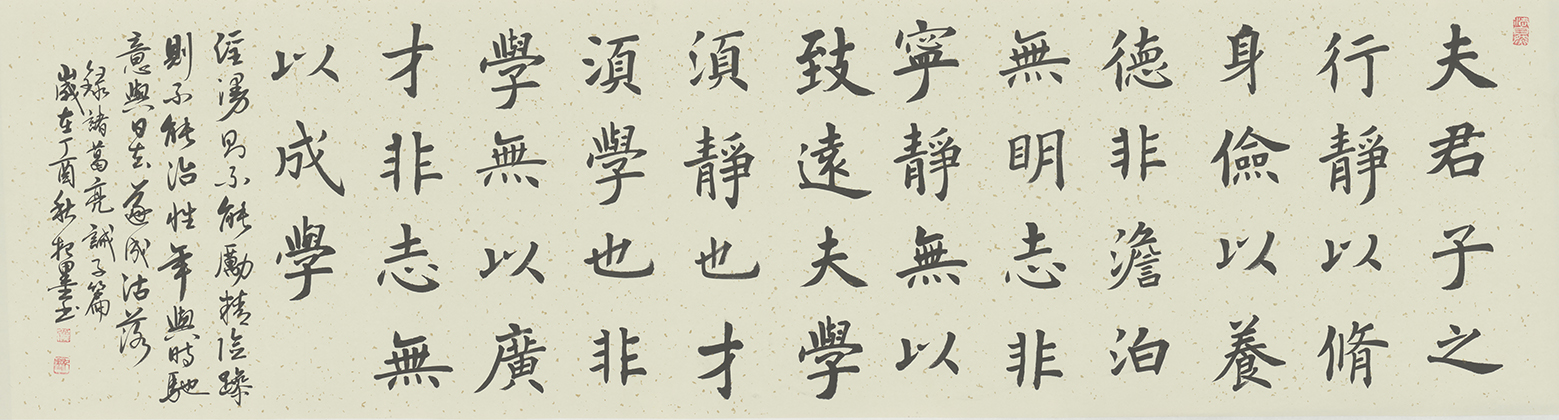 夫君子之
行靜以脩
身儉以養
德非澹泊
無明志非
寧靜無以
致遠夫學
須靜也才
須學也非
學無以廣
才非志無
以成學
淫漫則不能勵精險躁
則不能治性年與時馳
意與日去遂成枯落
錄諸葛亮誡子篇
歲在丁酉秋墨书